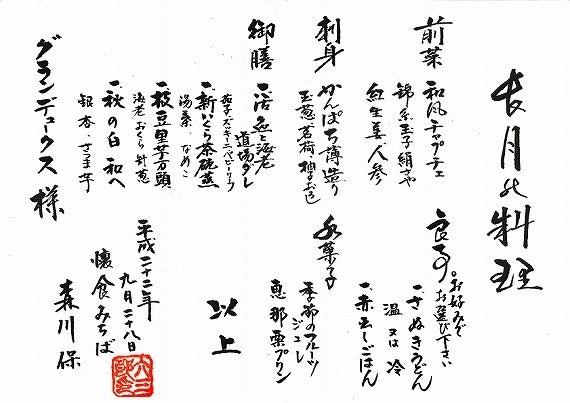 長月の料理
前菜
和風チャプチェ
錦糸玉子 絹さや
紅生姜、人参
刺身
かんぱち薄造り
玉葱、茗荷、柚子おろし
御膳
一、活〆と海老
道場ダレ
茄子、ズッキーニ、ベビーリーフ
一、新いくら茶碗蒸
湯葉 なめこ
一、枝豆里芋万頭
海老 おくら 針葱
一、秋の白和へ
銀杏、さつま芋
食事。お好みで
お選び下さい
一、さぬきうどん
温 又は 冷
一、赤玉しごはん
水菓子
季節のフルーツ
ジュレ
恵那栗プリン
以上
平成二十二年
九月二十八日
懐食みちば
森川保
グランデュークス様